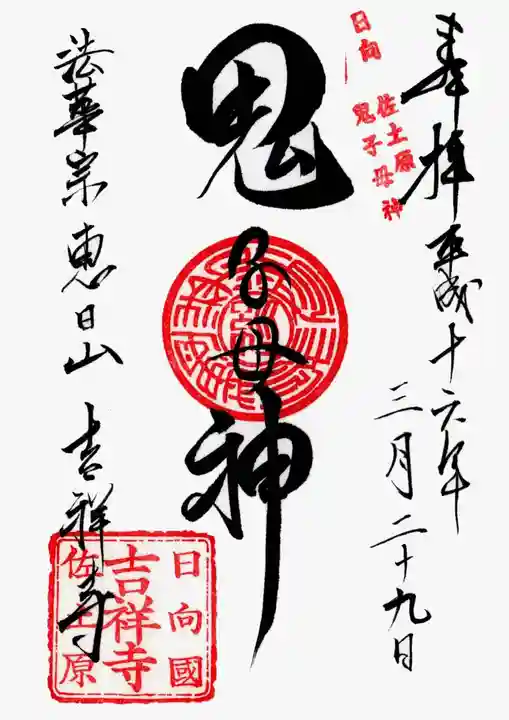 奉拝 平成十六年
三月二十九日
日向
佐土原
鬼子母神
鬼子母神
法華宗 恵日山 吉祥寺
日向國
吉祥寺
佐土原